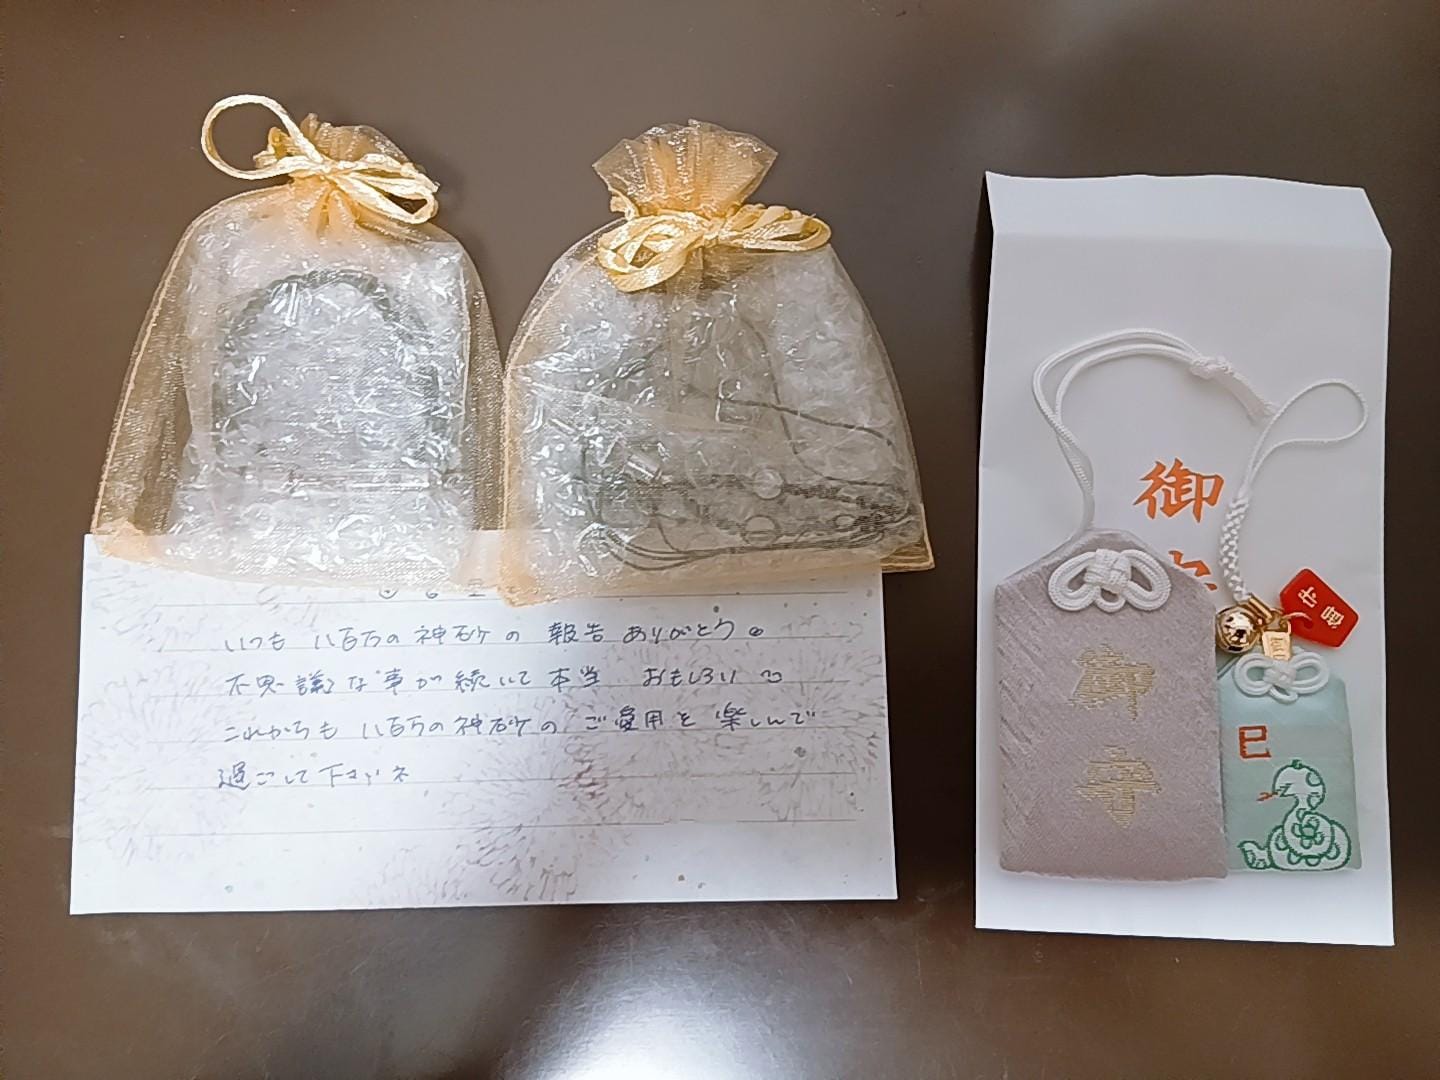 いつも 八百万の神砂の 報告 ありがとう。
不思議な事が続いて本当 おもしろい
これからも 八百万の神砂の ご愛用を 楽しんで
過ごして下さいネ
御
御守
御守
巳